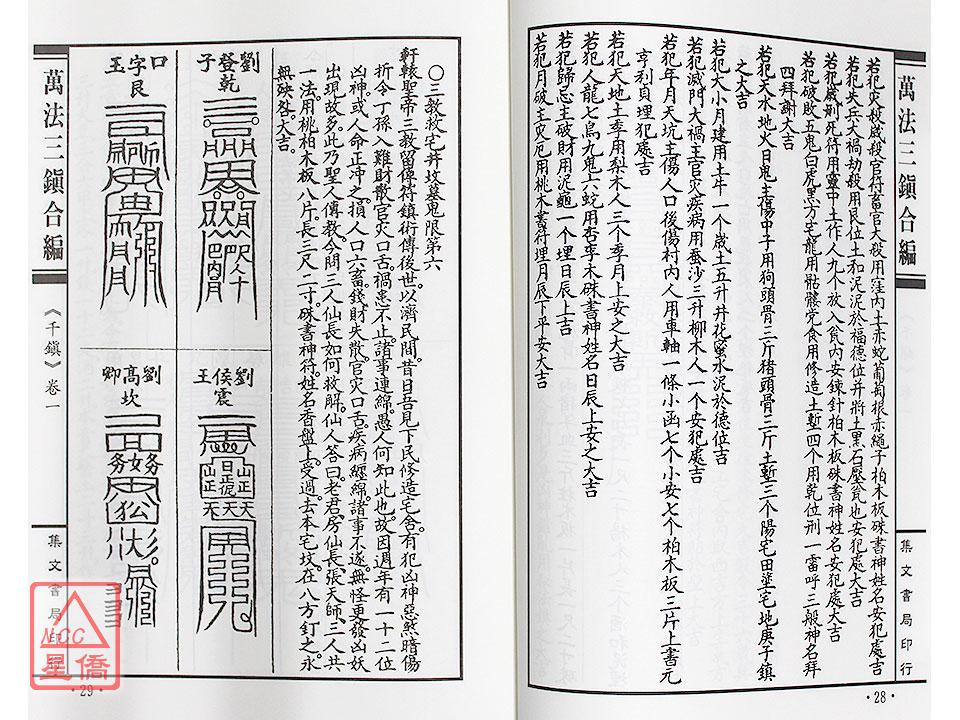 萬法三鎮合編
若犯災殺歲殺官符畜官大殺用窪內土赤蛇葡萄根赤繩子柏木板硃書神姓名安犯處吉
若犯失兵大禍劫殺用艮位土和泥泥於福德位并將土黑石壓瓮也安犯處大吉
若犯歲刑死符用竈中土作人九個放入瓮內安鍊針柏木板硃書神姓名安犯處大吉
若犯破敗五鬼白虎黑方宅龍用骷髏党食用修造土塹四个用乾位刑一雷呼三般神名拜
四拜謝大吉
若犯天水地火日鬼主傷中子用狗頭骨三斤猪頭骨二斤土塹三个陽宅田塋宅地庚子鎮
之大吉
若犯大小月建用土牛一个歲土五升井花蜜水泥於德位吉
若犯滅門大禍主官灾疾病用蚕沙三升柳木人一个安犯處吉
若犯年月天坑主傷人口後傷村內人用車軸一條小函七个小安七个柏木板三片上書元
亨利貞埋犯處吉
若犯天地土季用梨木人三个季月上安之大吉
若犯人龍七烏九鬼六蛇用杏李木硃書神姓名日辰上安之大吉
若犯歸忌主破財用泥龜一个埋日辰上吉
若犯月破主灾厄用桃木書符埋月辰下平安大吉
集文書局印行
·28·
○三教救宅井坟墓鬼限第六
軒轅聖帝三教留傳符鎮術傳後世。以濟民間。昔日吾見下民修造宅舍。有犯凶神惡煞暗傷
折令丁孫入難財散官灾口舌禍患不止。諸事連綿。愚人何知此也。故因週年有一十二位
凶神。或人命正冲之。損人口六畜錢財失散官灾口舌疾病纏綿。諸事不遂。無怪更發凶妖
出現故多。此乃聖人傳教。令問三人仙長如何救解。仙人答曰。老君。房仙長。張天師。三人共
一法。用桃柏木板八斤。長三尺二寸。硃書神符。姓名香盤上受過。去本宅坟。在八方釘之。永
無殃咎。大吉。
劉登子
乾
口字玉
艮
劉侯王
震
劉高卿
坎
萬法三鎮合編
《千鎮》卷一
集文書局印行
·29·
NCC
星僑